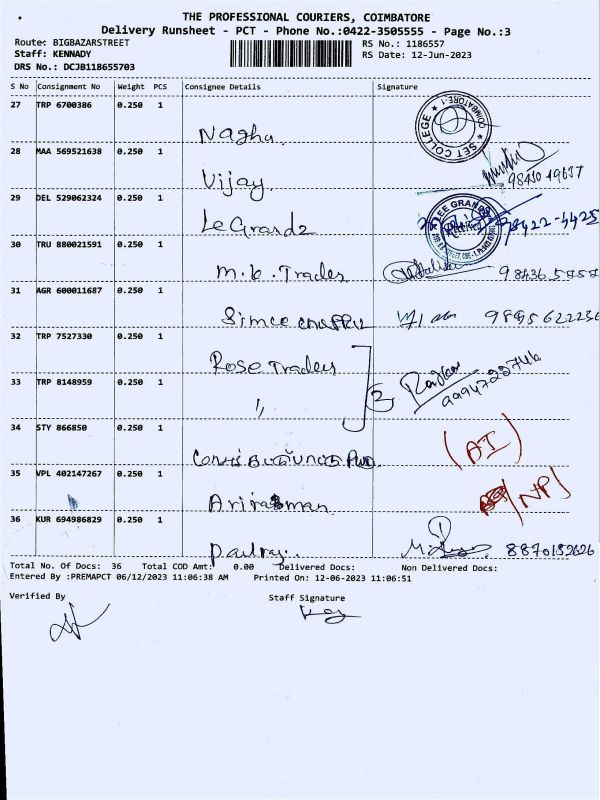 THE PROFESSIONAL COURIERS, COIMBATORE
Delivery Runsheet - PCT - Phone No.:0422-3505555 - Page No.:3
Route: BIGBAZARSTREET RS No.: 1186557
Staff: KENNADY RS Date: 12-Jun-2023
DRS No.: DCJB118655703
S No Consignment No Weight PCS Consignee Details Signature
27 TRP 6700386 0.250 1
Naghu.
SET COLLEGE COIMBATORE-1
28 MAA 569521638 0.250 1
Vijay
29 DEL 529062324 0.250 1
LeGrandz
30 TRU 880021591 0.250 1
M.k. Trades
31 AGR 600011687 0.250 1
32 TRP 7527330 0.250 1
Rose Traders
33 TRP 8148959 0.250 1
"
34 STY 866850 0.250 1
(AI)
35 VPL 402147267 0.250 1
NP
36 KUR 694986829 0.250 1
Paulraj. 8870132626
Total No. Of Docs: 36 Total COD Amt: 0.00 Delivered Docs: Non Delivered Docs:
Entered By :PREMAPCT 06/12/2023 11:06:38 AM Printed On: 12-06-2023 11:06:51
Verified By Staff Signature